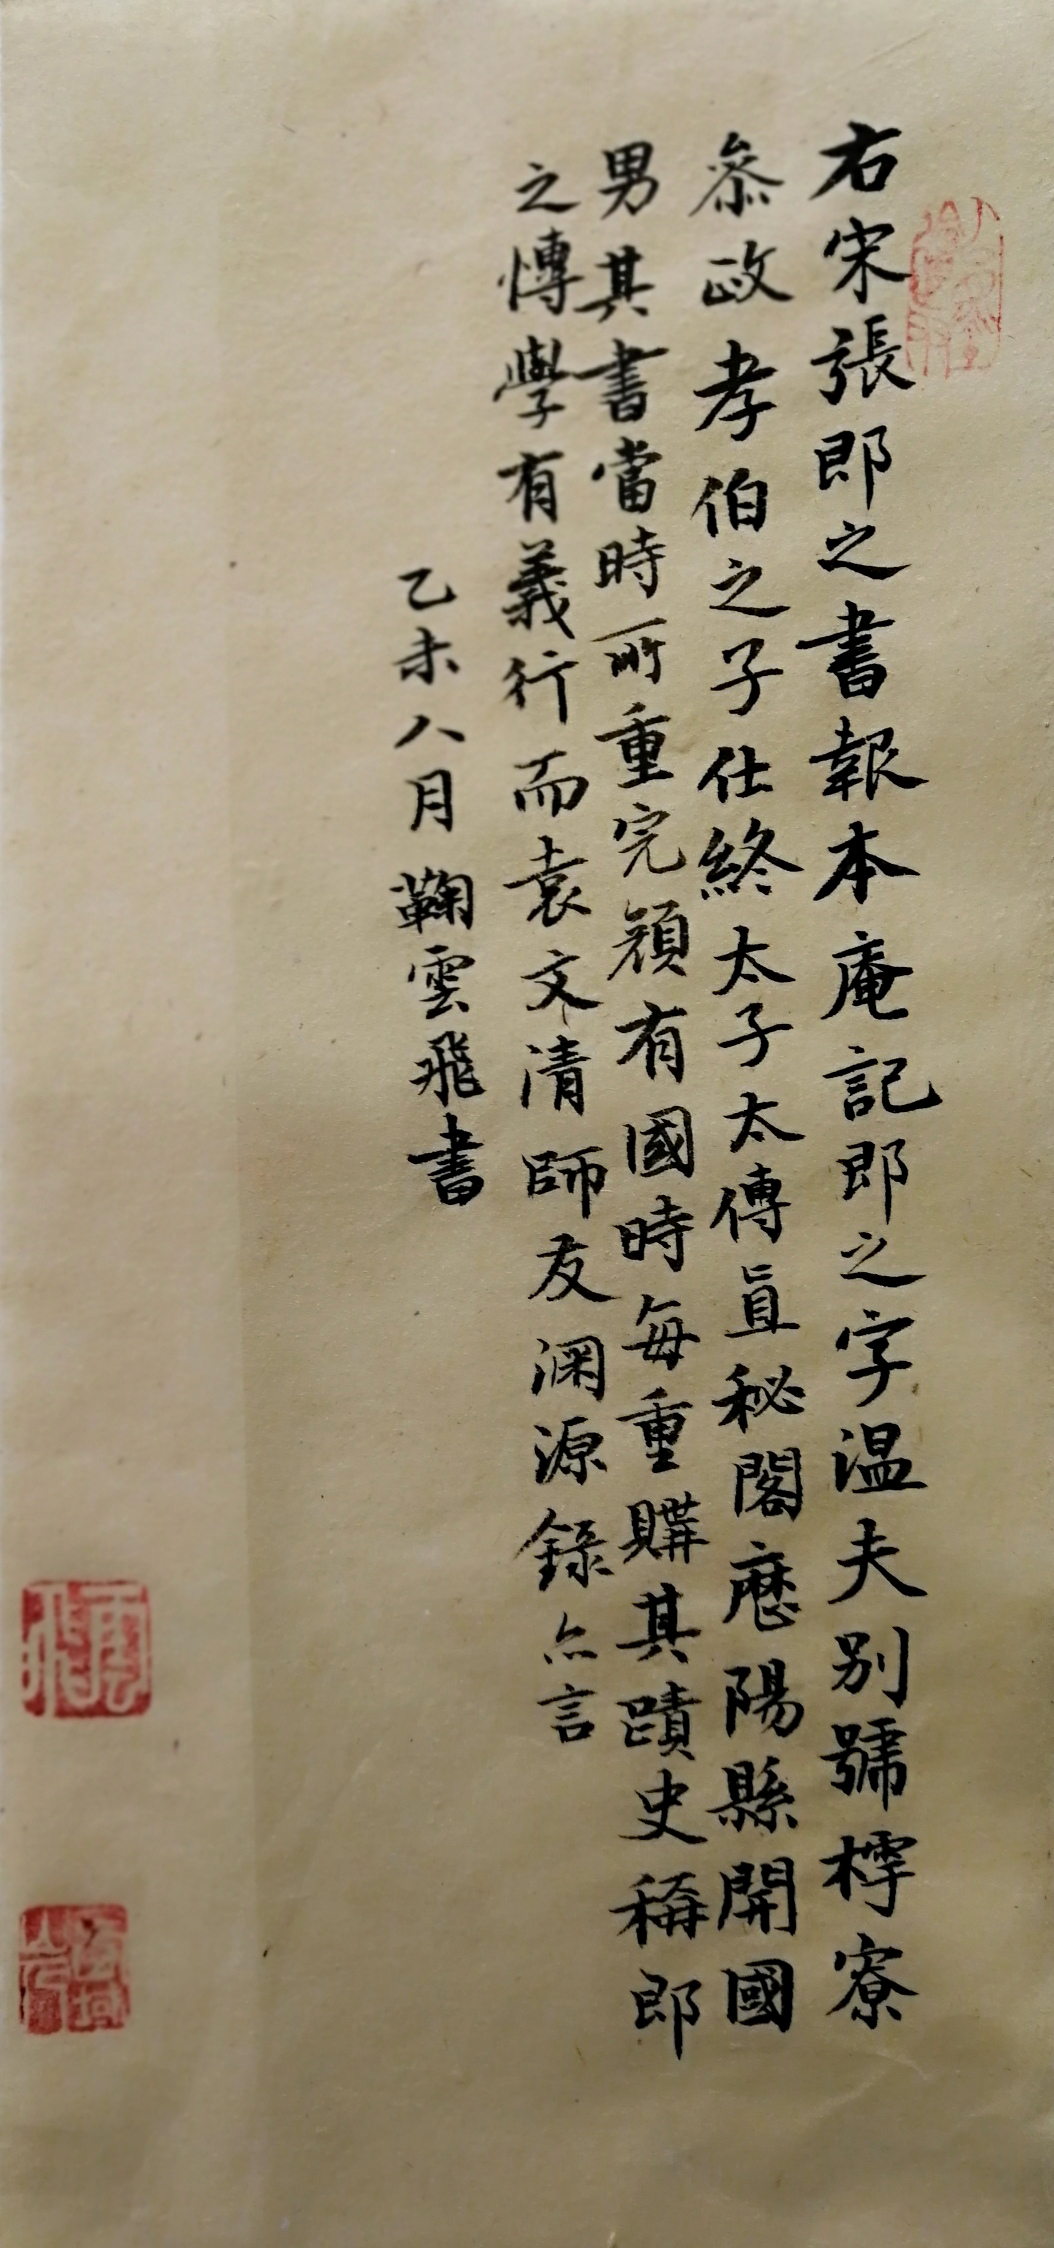 右宋張即之書報本庵記即之字温夫別號樗寮
叅政孝伯之子仕終太子太傅直秘閣歷陽縣開國
男其書當時所重完顏有國時每重購其蹟史稱即
之博學有義行而袁文清師友渊源錄亦言
乙未八月鞠雲飛書
雲飛